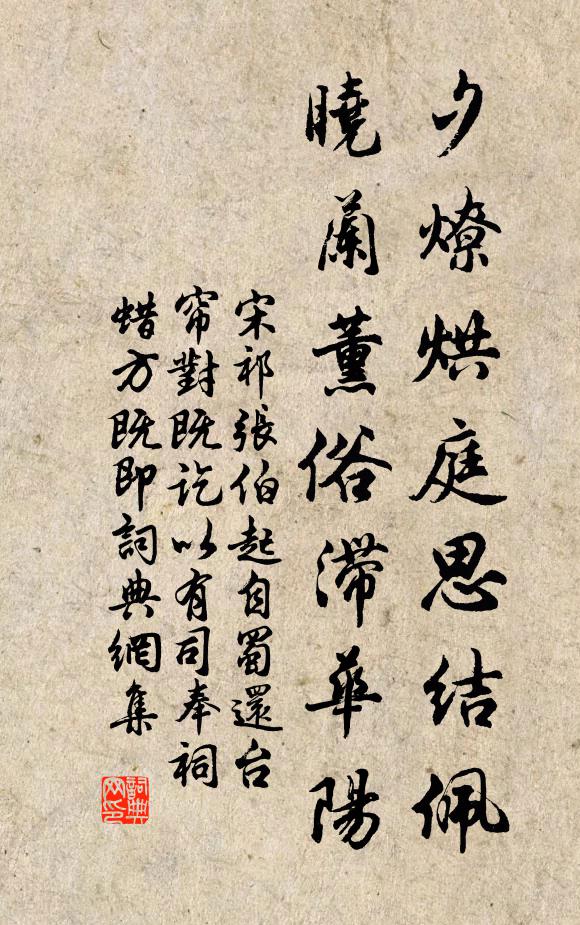 夕燎烘庭思結佩
曉蘭薰俗滯華陽
宋祁張伯起自蜀還台
帘對既訖以有司奉祠
蜡方既即詞典網集
詞典網印